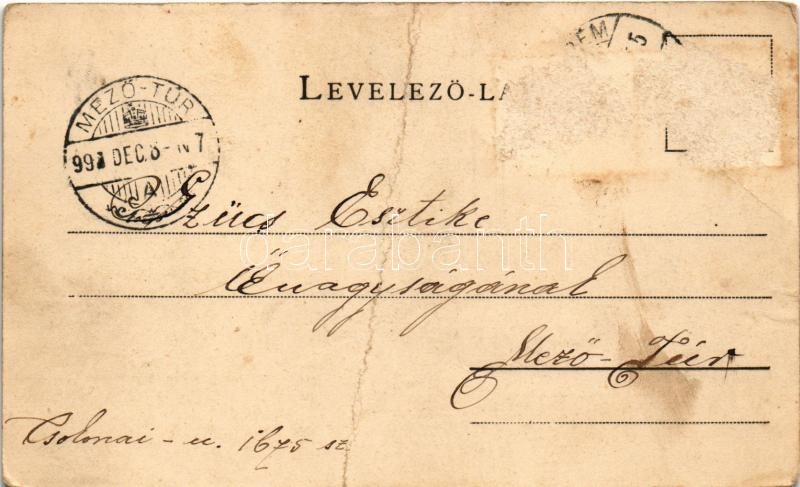 LEVELEZŐ-LA
MEZŐ-TÚR
997 DEC. 8 - N 7
A
Szücs Esztike
Őnagyságának
Mező-Túr
u. 1675 sz.
darabanth